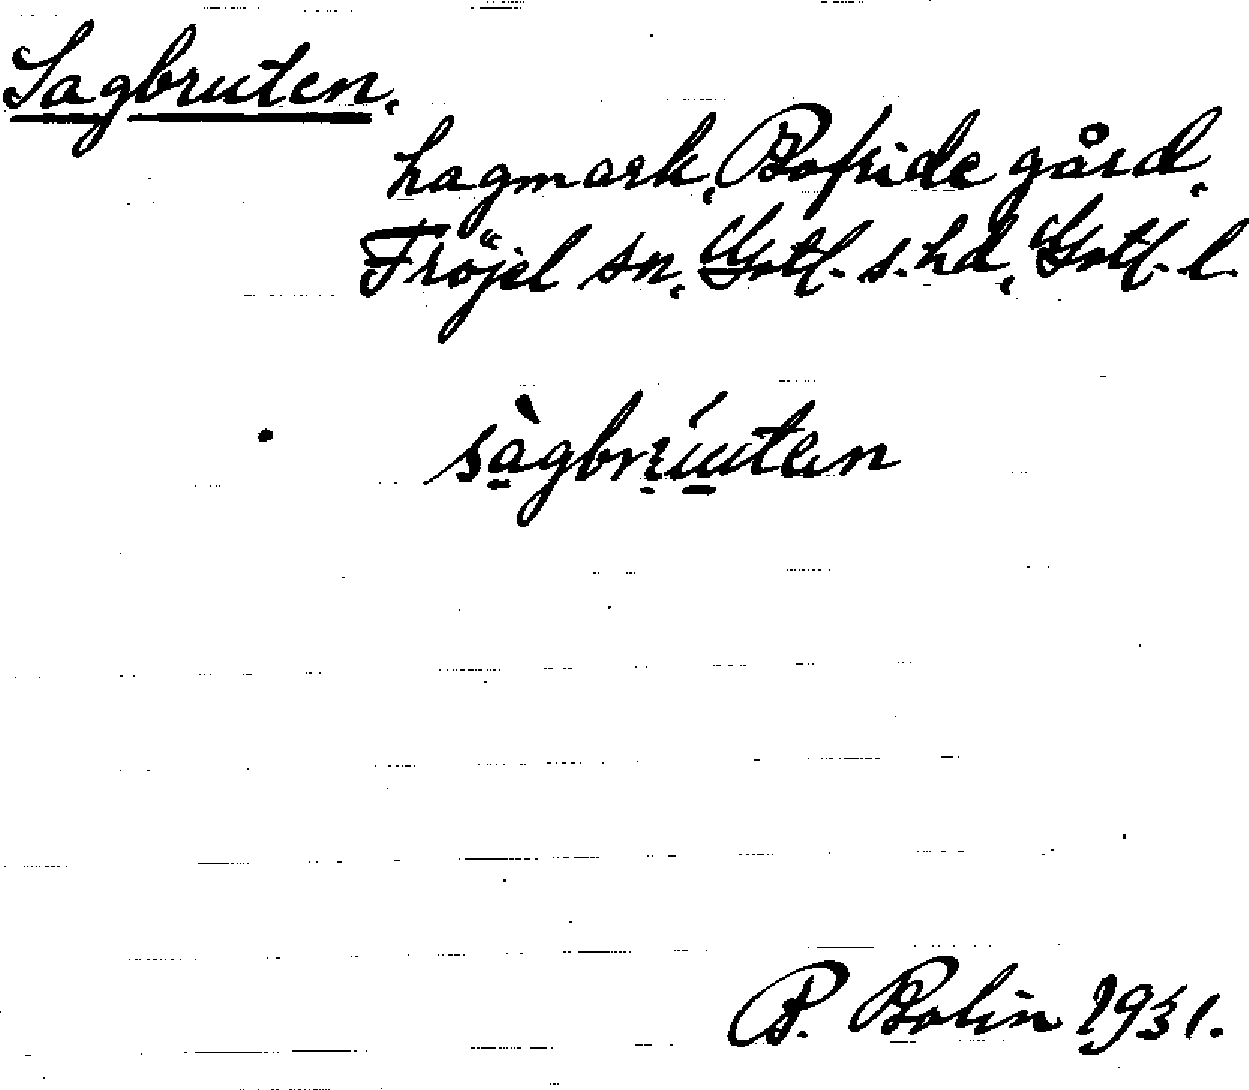 Sagbruten.
hagmark, Bofride gård,
Fröjel sn, Gotl. s. hd, Gotl. l.
sàgbrúuten
B. Bolin 1931.